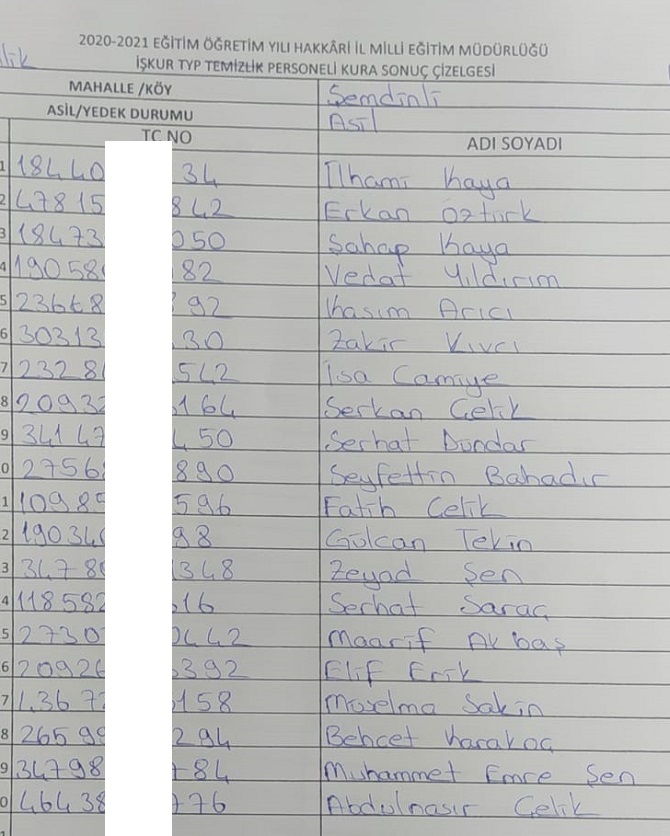 lik
2020-2021 EĞİTİM ÖĞRETİM YILI HAKKÂRİ İL MİLLİ EĞİTİM MÜDÜRLÜĞÜ
İŞKUR TYP TEMİZLİK PERSONELİ KURA SONUÇ ÇİZELGESİ
MAHALLE /KÖY Şemdinli
ASİL/YEDEK DURUMU Asil
TC NO ADI SOYADI
1 18440 34 İlhami Kaya
2 47815 842 Erkan Öztürk
3 18473 050 Şahap Kaya
4 19058 82 Vedat Yıldırım
5 23668 92 Kasım Arıcı
6 30313 30 Zakir Kıvcı
7 2328 542 İsa Camiye
8 2093 164 Serkan Çelik
9 34147 450 Serhat Dündar
0 2756 890 Seyfettin Bahadır
1 1098 596 Fatih Çelik
2 19034 98 Gülcan Tekin
3 3478 348 Zeyad Şen
4 11858 16 Serhat Saraç
5 2730 442 Maarif Akbaş
6 2092 392 Elif Erik
7 4367 158 Müselma Sakin
8 2659 294 Behcet Karakoç
9 34798 84 Muhammet Emre Şen
0 46438 776 Abdulnasır Çelik